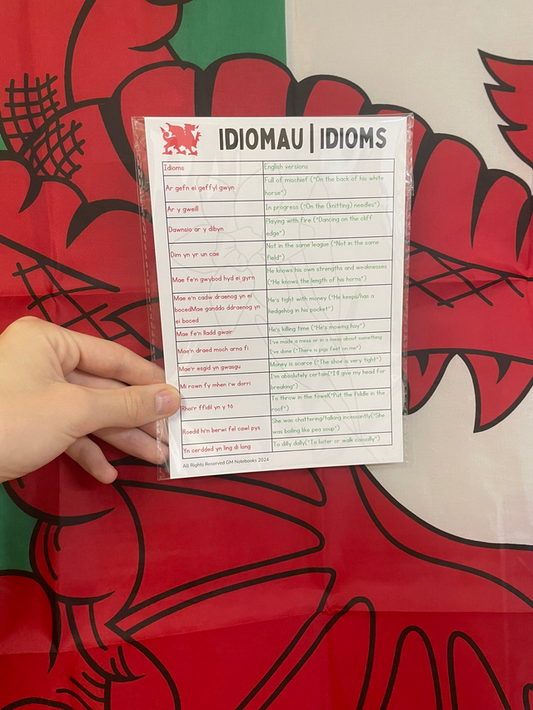 IDIOMAU | IDIOMS
Idioms
English versions
Ar gefn ei geffyl gwyn
Full of mischief ("On the back of his white
horse")
Ar y gweill
In progress ("On the (knitting) needles")
Dawnsio ar y dibyn
Playing with fire ("Dancing on the cliff
edge")
Dim yn yr un cae
Not in the same league ("Not in the same
field")
Mae fe'n gwybod hyd ei gyrn
He knows his own strengths and weaknesses
"He knows the length of his horns")
Mae e'n cadw draenog yn ei
bocedMae ganddo ddraenog yn
ei boced
He's tight with money ("He keeps/has a
hedgehog in his pocket")
Mae fe'n lladd gwair
He's killing time ("He's mowing hay")
Mae'n draed moch arna fi
I've made a mess or in a mess about something
I've done ("There is pigs feet on me")
Mae'r esgid yn gwasgu
Money is scarce ("The shoe is very tight")
Mi rown fy mhen i'w dorri
I'm absolutely certain("I'll give my head for
breaking")
Rhoi'r ffidil yn y tô
To throw in the towel("Put the fiddle in the
roof")
Roedd hi'n berwi fel cawl pys
She was chattering/talking incessantly("She
was boiling like pea soup")
Yn cerdded yn ling di long
To dilly dally("To loiter or walk casually")
All Rights Reserved GM Notebooks 2024